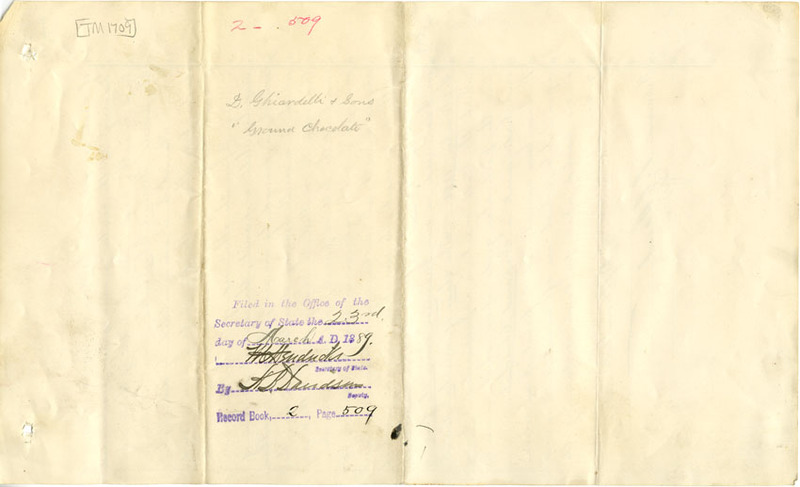 TM 1709
2 - . 509
D. Ghiardelli + Sons
"Ground Chocolate"
Filed in the Office of the
Secretary of State the 23rd
day of March A. D. 1889.
W C Hendricks
Secretary of State.
By
Deputy.
Record Book, 2, Page 509